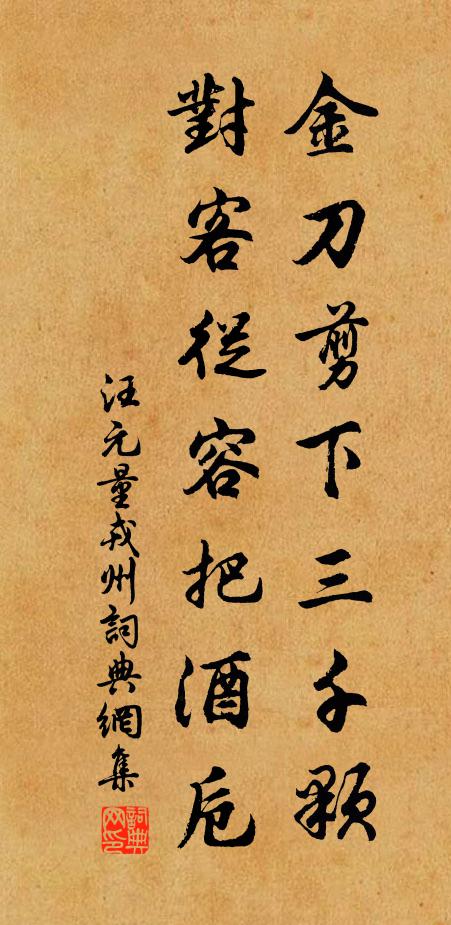 金刀剪下三千顆
對客從容把酒卮
汪元量戎州詞典網集
詞典網印